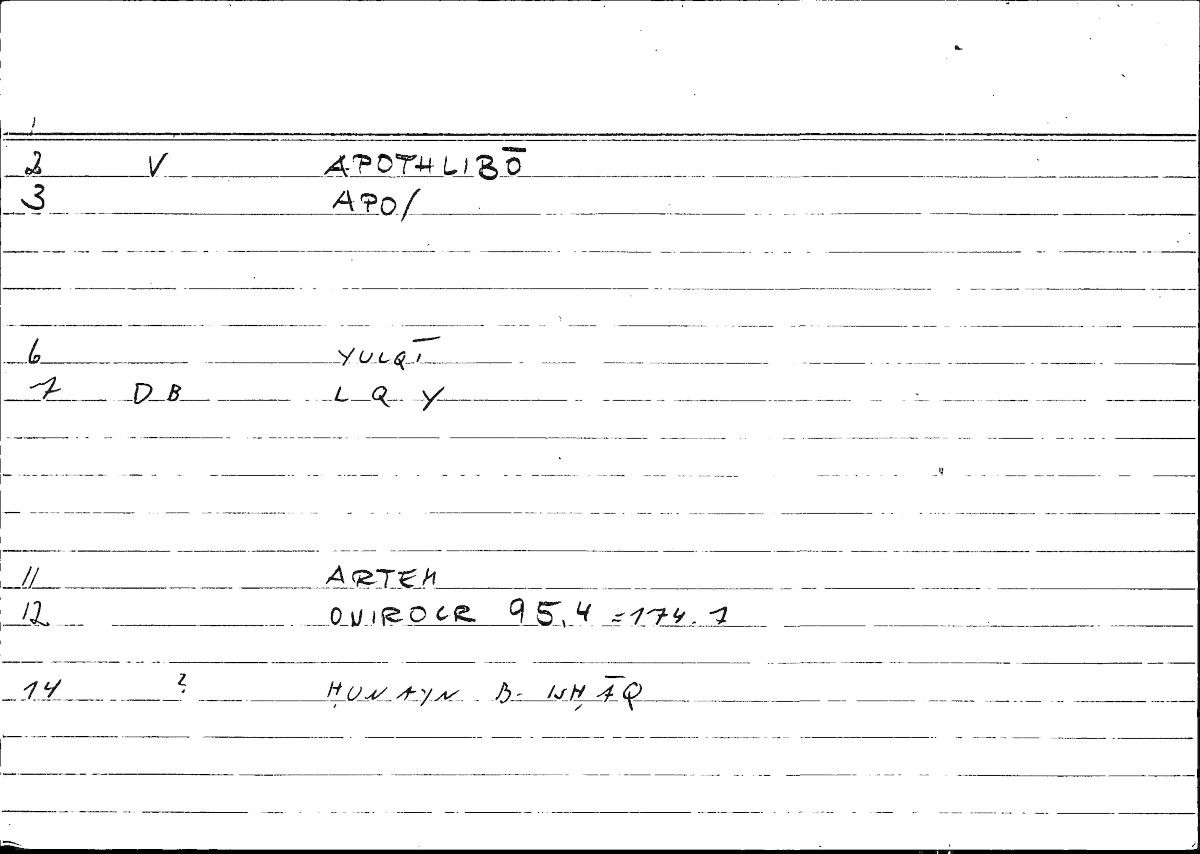 1
2 V APOTHLIBŌ
3 APO/
6 YULQĪ
7 DB L Q Y
11 ARTEM
12 ONIROCR 95,4 = 174.7
14 ? ḤUNAYN B. ISḤĀQ